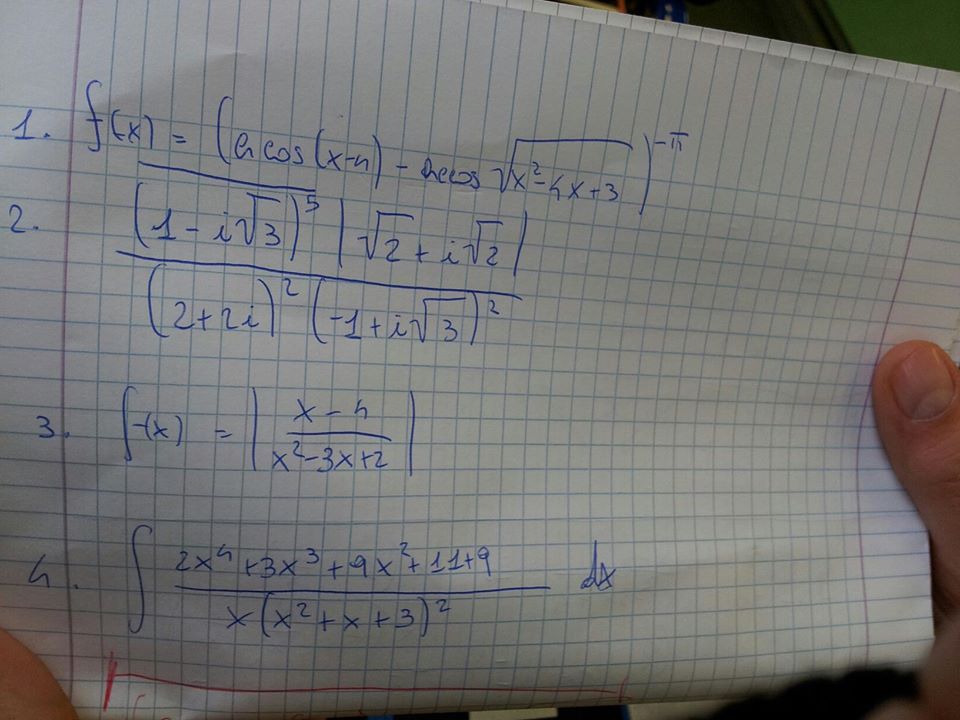 1. f(x) = (arccos(x-4) - arccos √(x²-4x+3))^-π
2. (1-i√3)⁵ |√2+i√2| / (2+2i)² (-1+i√3)²
3. f(x) = |(x-4)/(x²-3x+2)|
4. ∫ (2x⁴+3x³+9x²+11+9)/(x(x²+x+3)²) dx